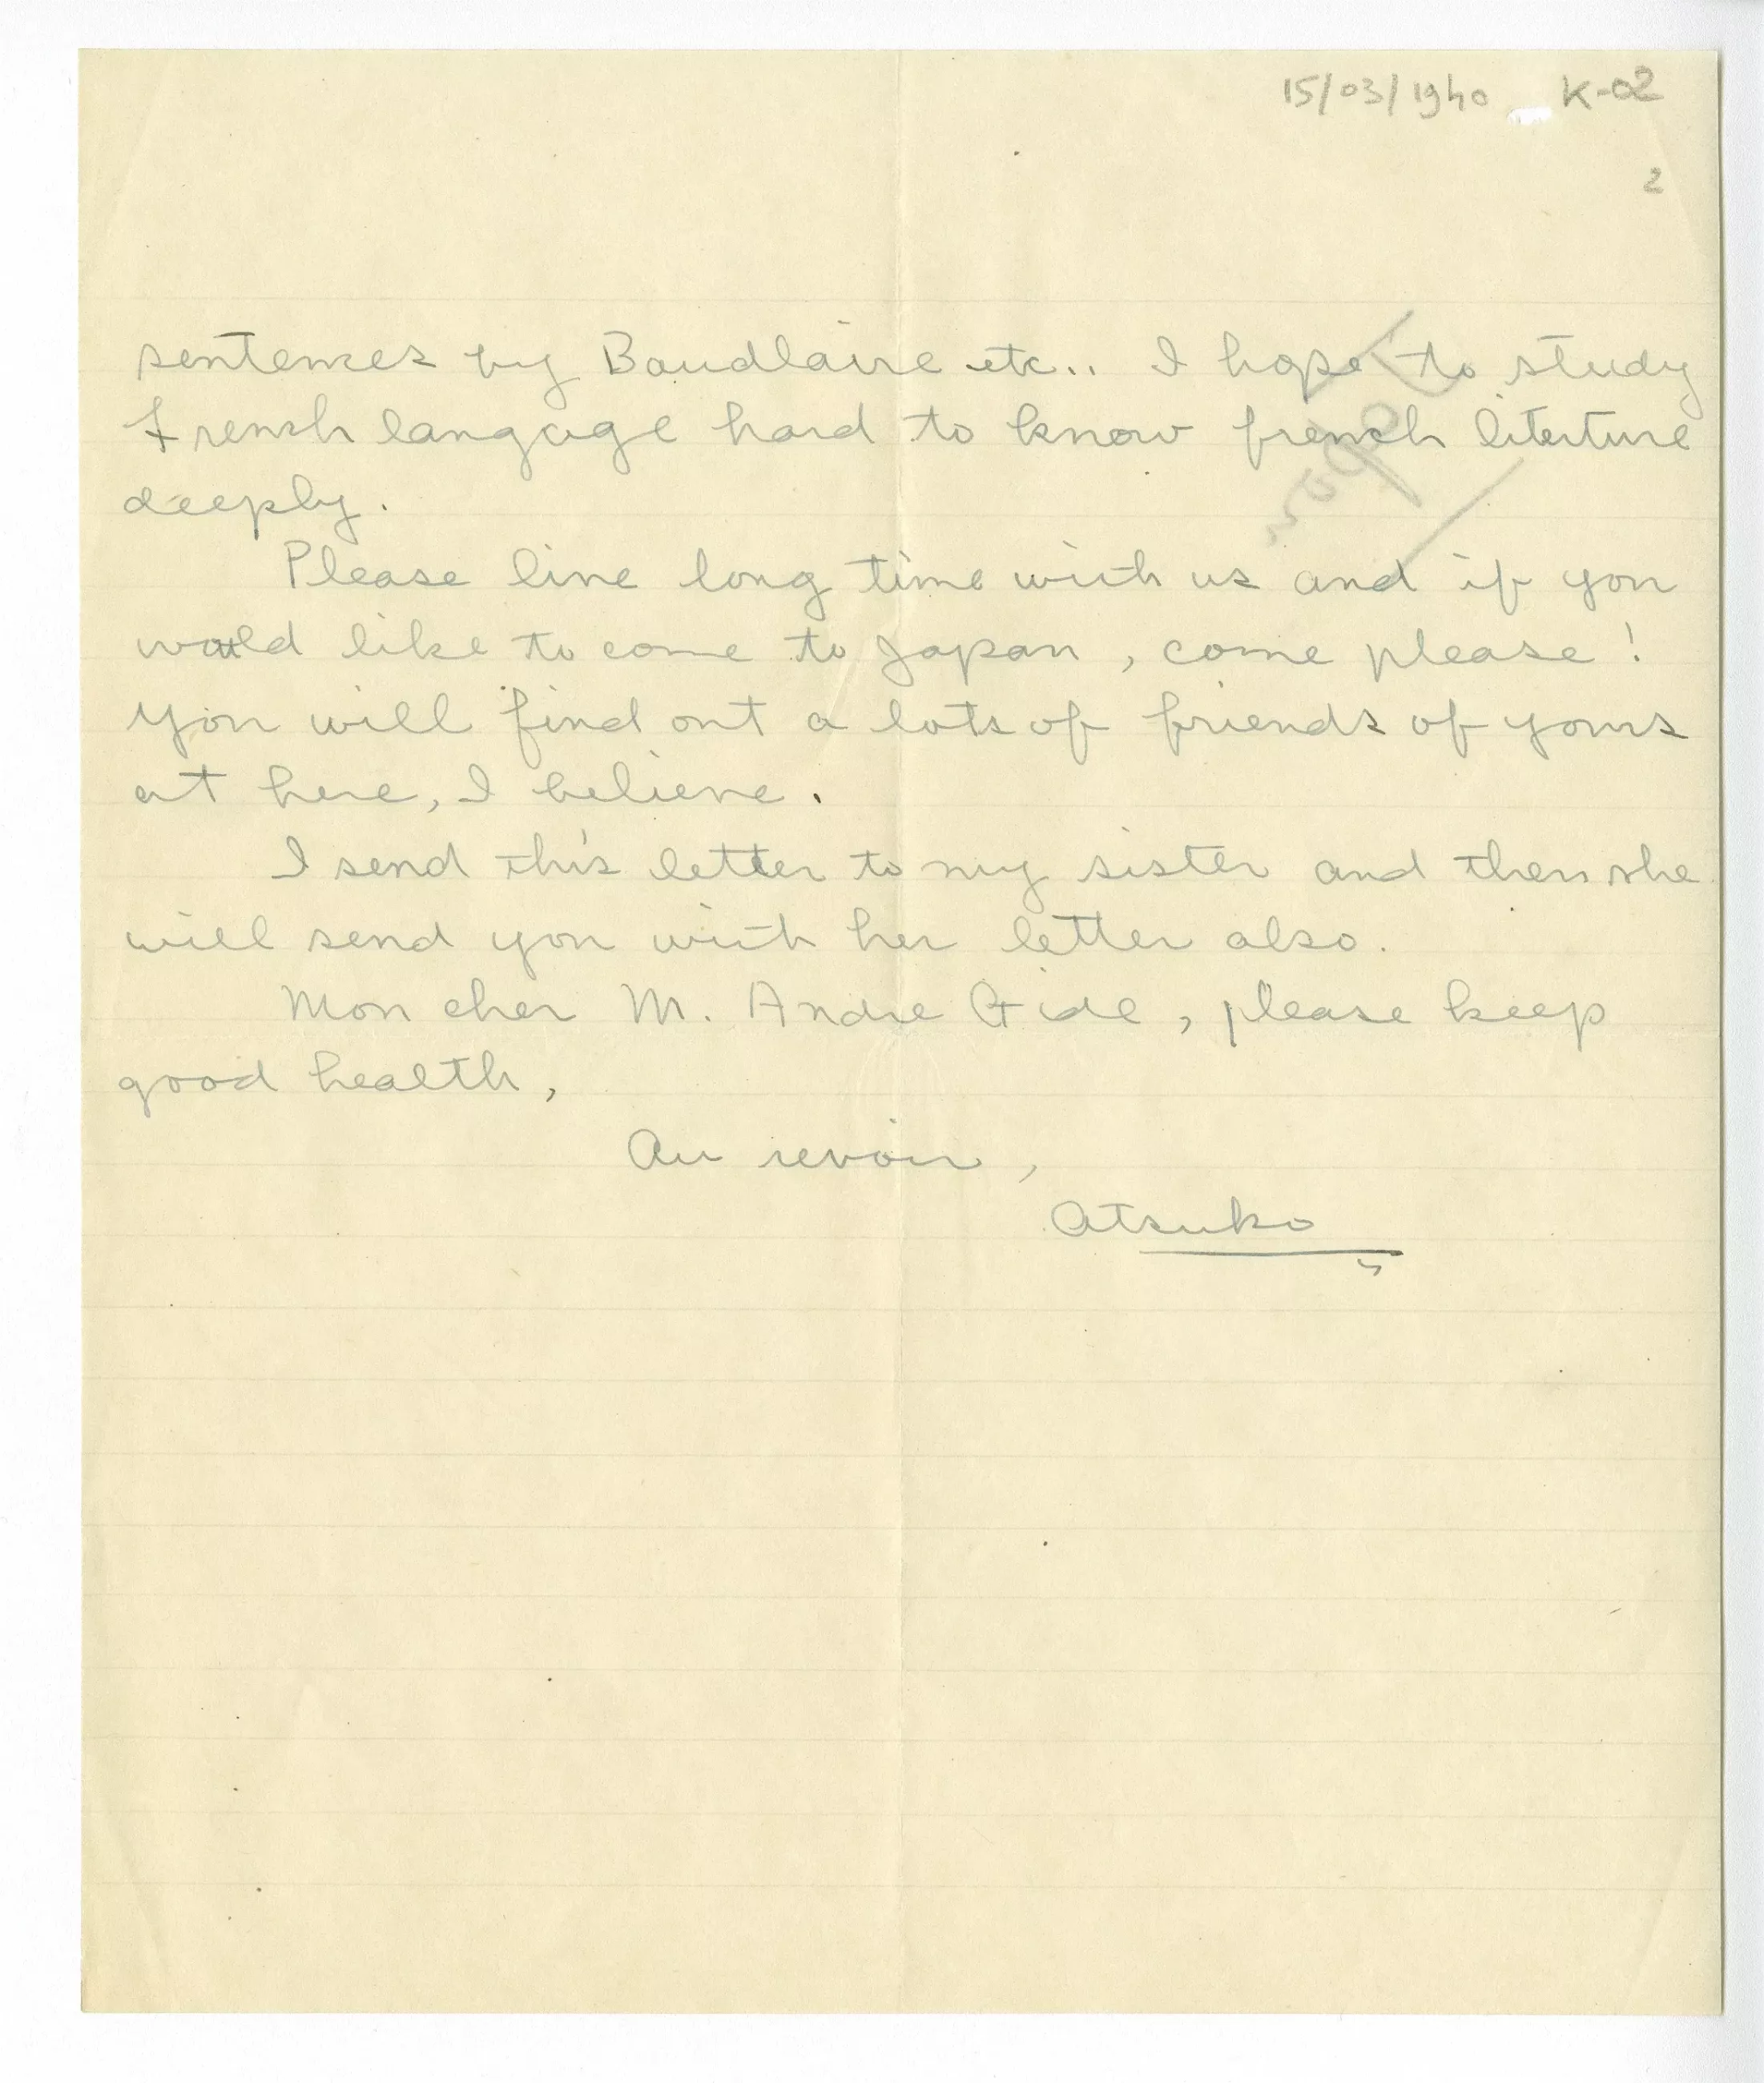 15/03/1940 K-02
2
sentences by Baudlaire etc.. I hope to study
French langauge hard to know french literture
deeply.
Please live long time with us and if you
would like to come to Japan, come please!
You will find out a lots of friends of yours
at here, I believe.
I send this letter to my sister and then she
will send you with her letter also.
Mon cher M. Andre Gide, please keep
good health,
Au revoir,
Atsuko